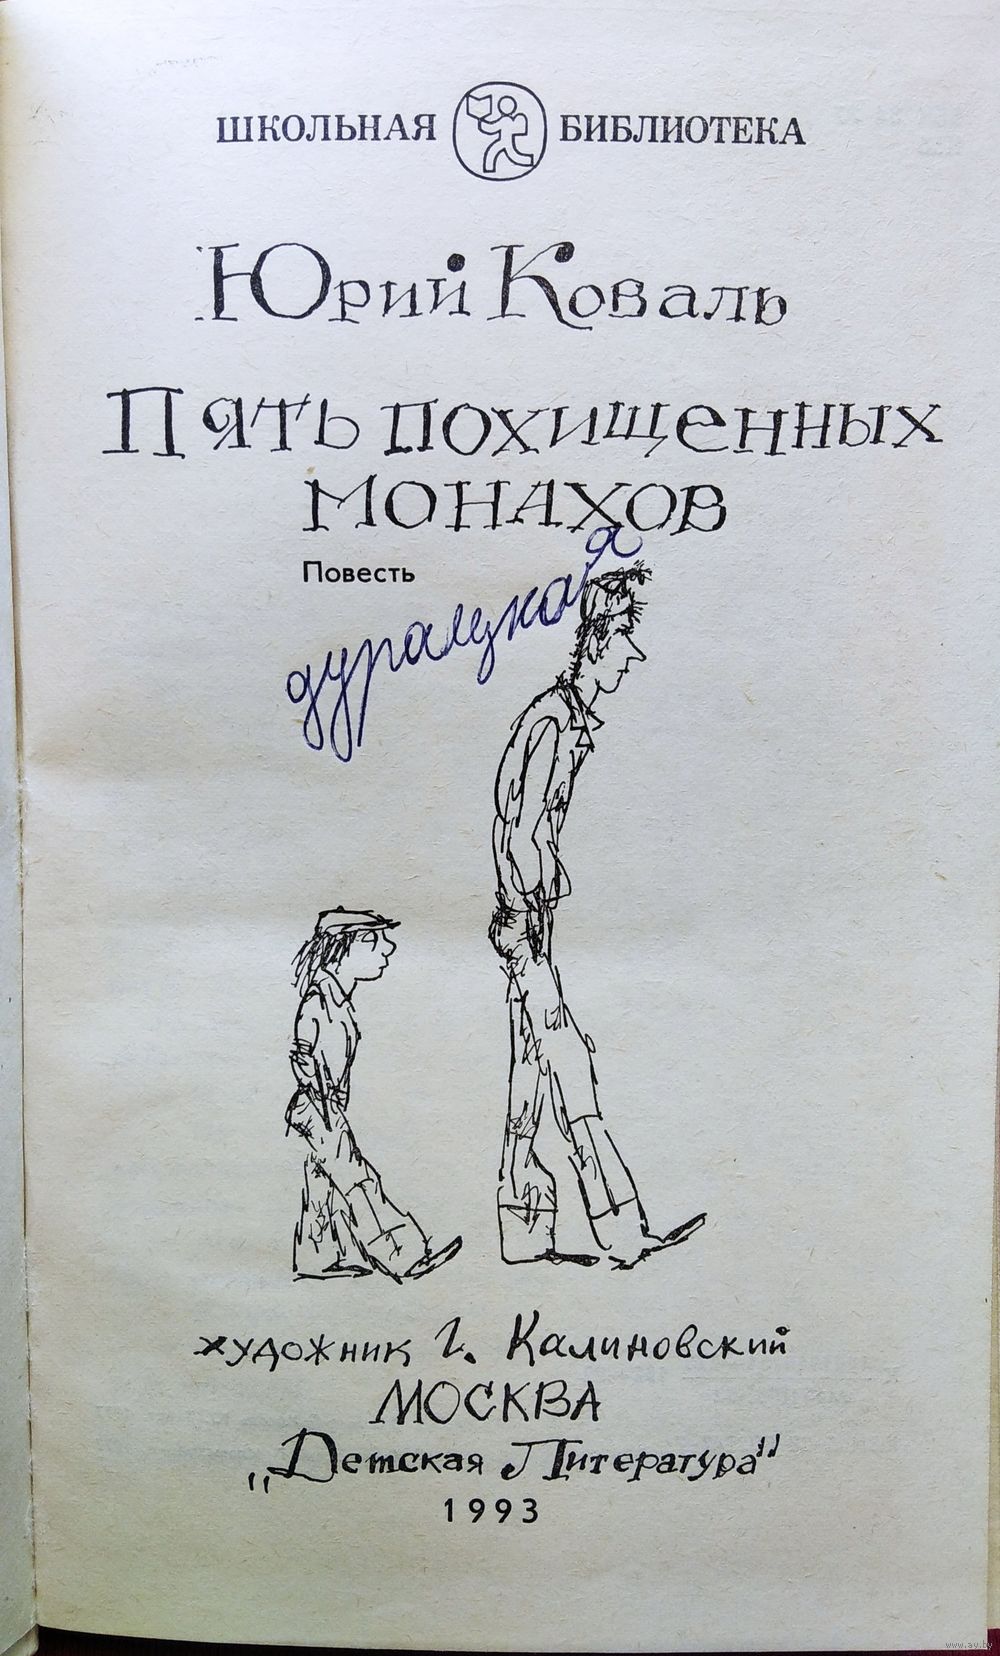 ШКОЛЬНАЯ БИБЛИОТЕКА
Юрий Коваль
Пять похищенных
монахов
Повесть
дурацкая
художник Г. Калиновский
МОСКВА
„Детская Литература"
1993
www.ay.by